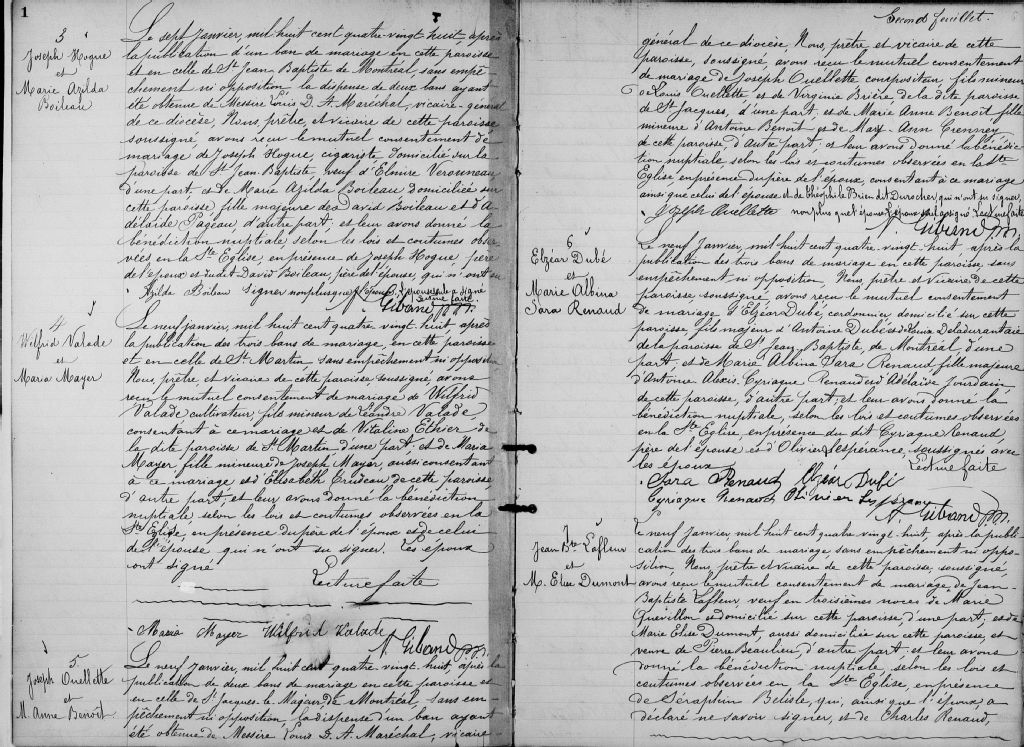 1
3
Joseph Hogue
et
Marie Azilda
Boileau
Le sept janvier, mil huit cent quatre-vingt huit après
la publication d'un ban de mariage en cette paroisse
et en celle de St Jean Baptiste de Montréal, sans empê-
chement ni opposition la dispense de deux bans ayant
été obtenue de Messire Louis D. A. Maréchal, vicaire-général
de ce diocèse, Nous, prêtre, et vicaire de cette paroisse
soussigné avons reçu le mutuel consentement de
mariage de Joseph Hogue, cigariste, domicilié sur la
paroisse de St Jean Baptiste, veuf d'Elmire Veronneau
d'une part, et de Marie Azilda Boileau domiciliée sur
cette paroisse fille majeure de David Boileau et d'A-
délaïde Pageau, d'autre part; et leur avons donné la
bénédiction nuptiale selon les lois et coutumes obser-
vées en la Ste Eglise, en présence de Joseph Hogue, père
de l'époux et du dit David Boileau, père de l'épouse, qui n'ont su
signer non plus que l'époux. L'épouse seule a signé
Lecture faite.
Azilda Boileau
A. Giband ptre.
4
Wilfrid Valade
et
Maria Mayer
Le neuf janvier, mil huit cent quatre vingt huit, après
la publication des trois bans de mariage, en cette paroisse
et en celle de St Martin, sans empêchement ni opposition
Nous, prêtre et vicaire de cette paroisse soussigné, avons
reçu le mutuel consentement de mariage de Wilfrid
Valade cultivateur, fils mineur de Léandre Valade
consentant à ce mariage et de Vitaline Ethier de
la dite paroisse de St Martin d'une part; et de Maria
Mayer, fille mineure de Joseph Mayer, aussi consentant
à ce mariage et d'Elisabeth Crudeau de cette paroisse
d'autre part; et leur avons donné la bénédiction
nuptiale, selon les lois et coutumes observées en la
Ste Eglise, en présence du père de l'époux et de celui
de l'épouse qui n'ont su signer. Les époux
ont signé
Lecture faite
Maria Mayer Wilfrid Valade
A. Giband ptre.
5
Joseph Ouellette
et
M. Anne Benoit
Le neuf janvier, mil huit cent quatre vingt huit, après la
publication de deux bans de mariage en cette paroisse et
en celle de St Jacques-le-Majeur de Montréal, sans em-
pêchement ni opposition, la dispense d'un ban ayant
été obtenue de Messire Louis D. A. Maréchal, vicaire
Second feuillet.
général de ce diocèse, Nous, prêtre et vicaire de cette
paroisse, soussigné, avons reçu le mutuel consentement
de mariage de Joseph Ouellette compositeur fils mineur
de Louis Ouellette et de Virginie Brière, de la dite paroisse
de St Jacques, d'une part; et de Marie Anne Benoit, fille
mineure d'Antoine Benoit et de Mary-Ann
de cette paroisse, d'autre part; et leur avons donné la bénédic-
tion nuptiale, selon les lois et coutumes observées en la Ste
Eglise en présence du père de l'époux, consentant à ce mariage
ainsi que celui de l'épouse et de Théophile Brien dit Durocher, qui n'ont su signer,
non plus que l'épouse. L'époux seul a signé. Lecture faite
Joseph Ouellette
A. Giband ptre.
6
Elzéar Dubé
et
Marie Albina
Sara Renaud
Le neuf janvier, mil huit cent quatre-vingt-huit, après la
publication des trois bans de mariage en cette paroisse sans
empêchement ni opposition, Nous, prêtre et vicaire de cette
paroisse, soussigné, avons reçu le mutuel consentement
de mariage d'Elzéar Dubé, cordonnier domicilié sur cette
paroisse, fils majeur d'Antoine Dubé et de Louise Deladurantaie
de la paroisse de St Jean Baptiste, de Montréal d'une
part, et de Marie Albina Sara Renaud fille majeure
d'Antoine Alexis-Cyriaque Renaud et d'Adélaïse Jourdain,
de cette paroisse, d'autre part; et leur avons donné la
bénédiction nuptiale, selon les lois et coutumes observées
en la Ste Eglise, en présence du dit Cyriaque Renaud,
père de l'épouse et d'Olivier Lespérance, soussignés avec
les époux. Lecture faite
Sara Renaud Elzéar Dubé
Cyriaque Renaud Olivier Lespérance
A. Giband ptre.
7
Jean Bte Lafleur
et
M. Elise Dumont
Le neuf janvier mil huit cent quatre vingt-huit, après la publi-
cation des trois bans de mariage sans empêchement ni oppo-
sition. Nous, prêtre et vicaire de cette paroisse, soussigné,
avons reçu le mutuel consentement de mariage de Jean-
Baptiste Lafleur, veuf en troisièmes noces de Marie
Quévillon et domicilié sur cette paroisse, d'une part, et de
Marie Elise Dumont, aussi domiciliée sur cette paroisse, et
veuve de Pierre Beaulieu, d'autre part et leur avons
donné la bénédiction nuptiale, selon les lois et
coutumes observées en la Ste Eglise, en présence
de Séraphin Belisle, qui, ainsi que l'époux, a
déclaré ne savoir signer, et de Charles Renaud,